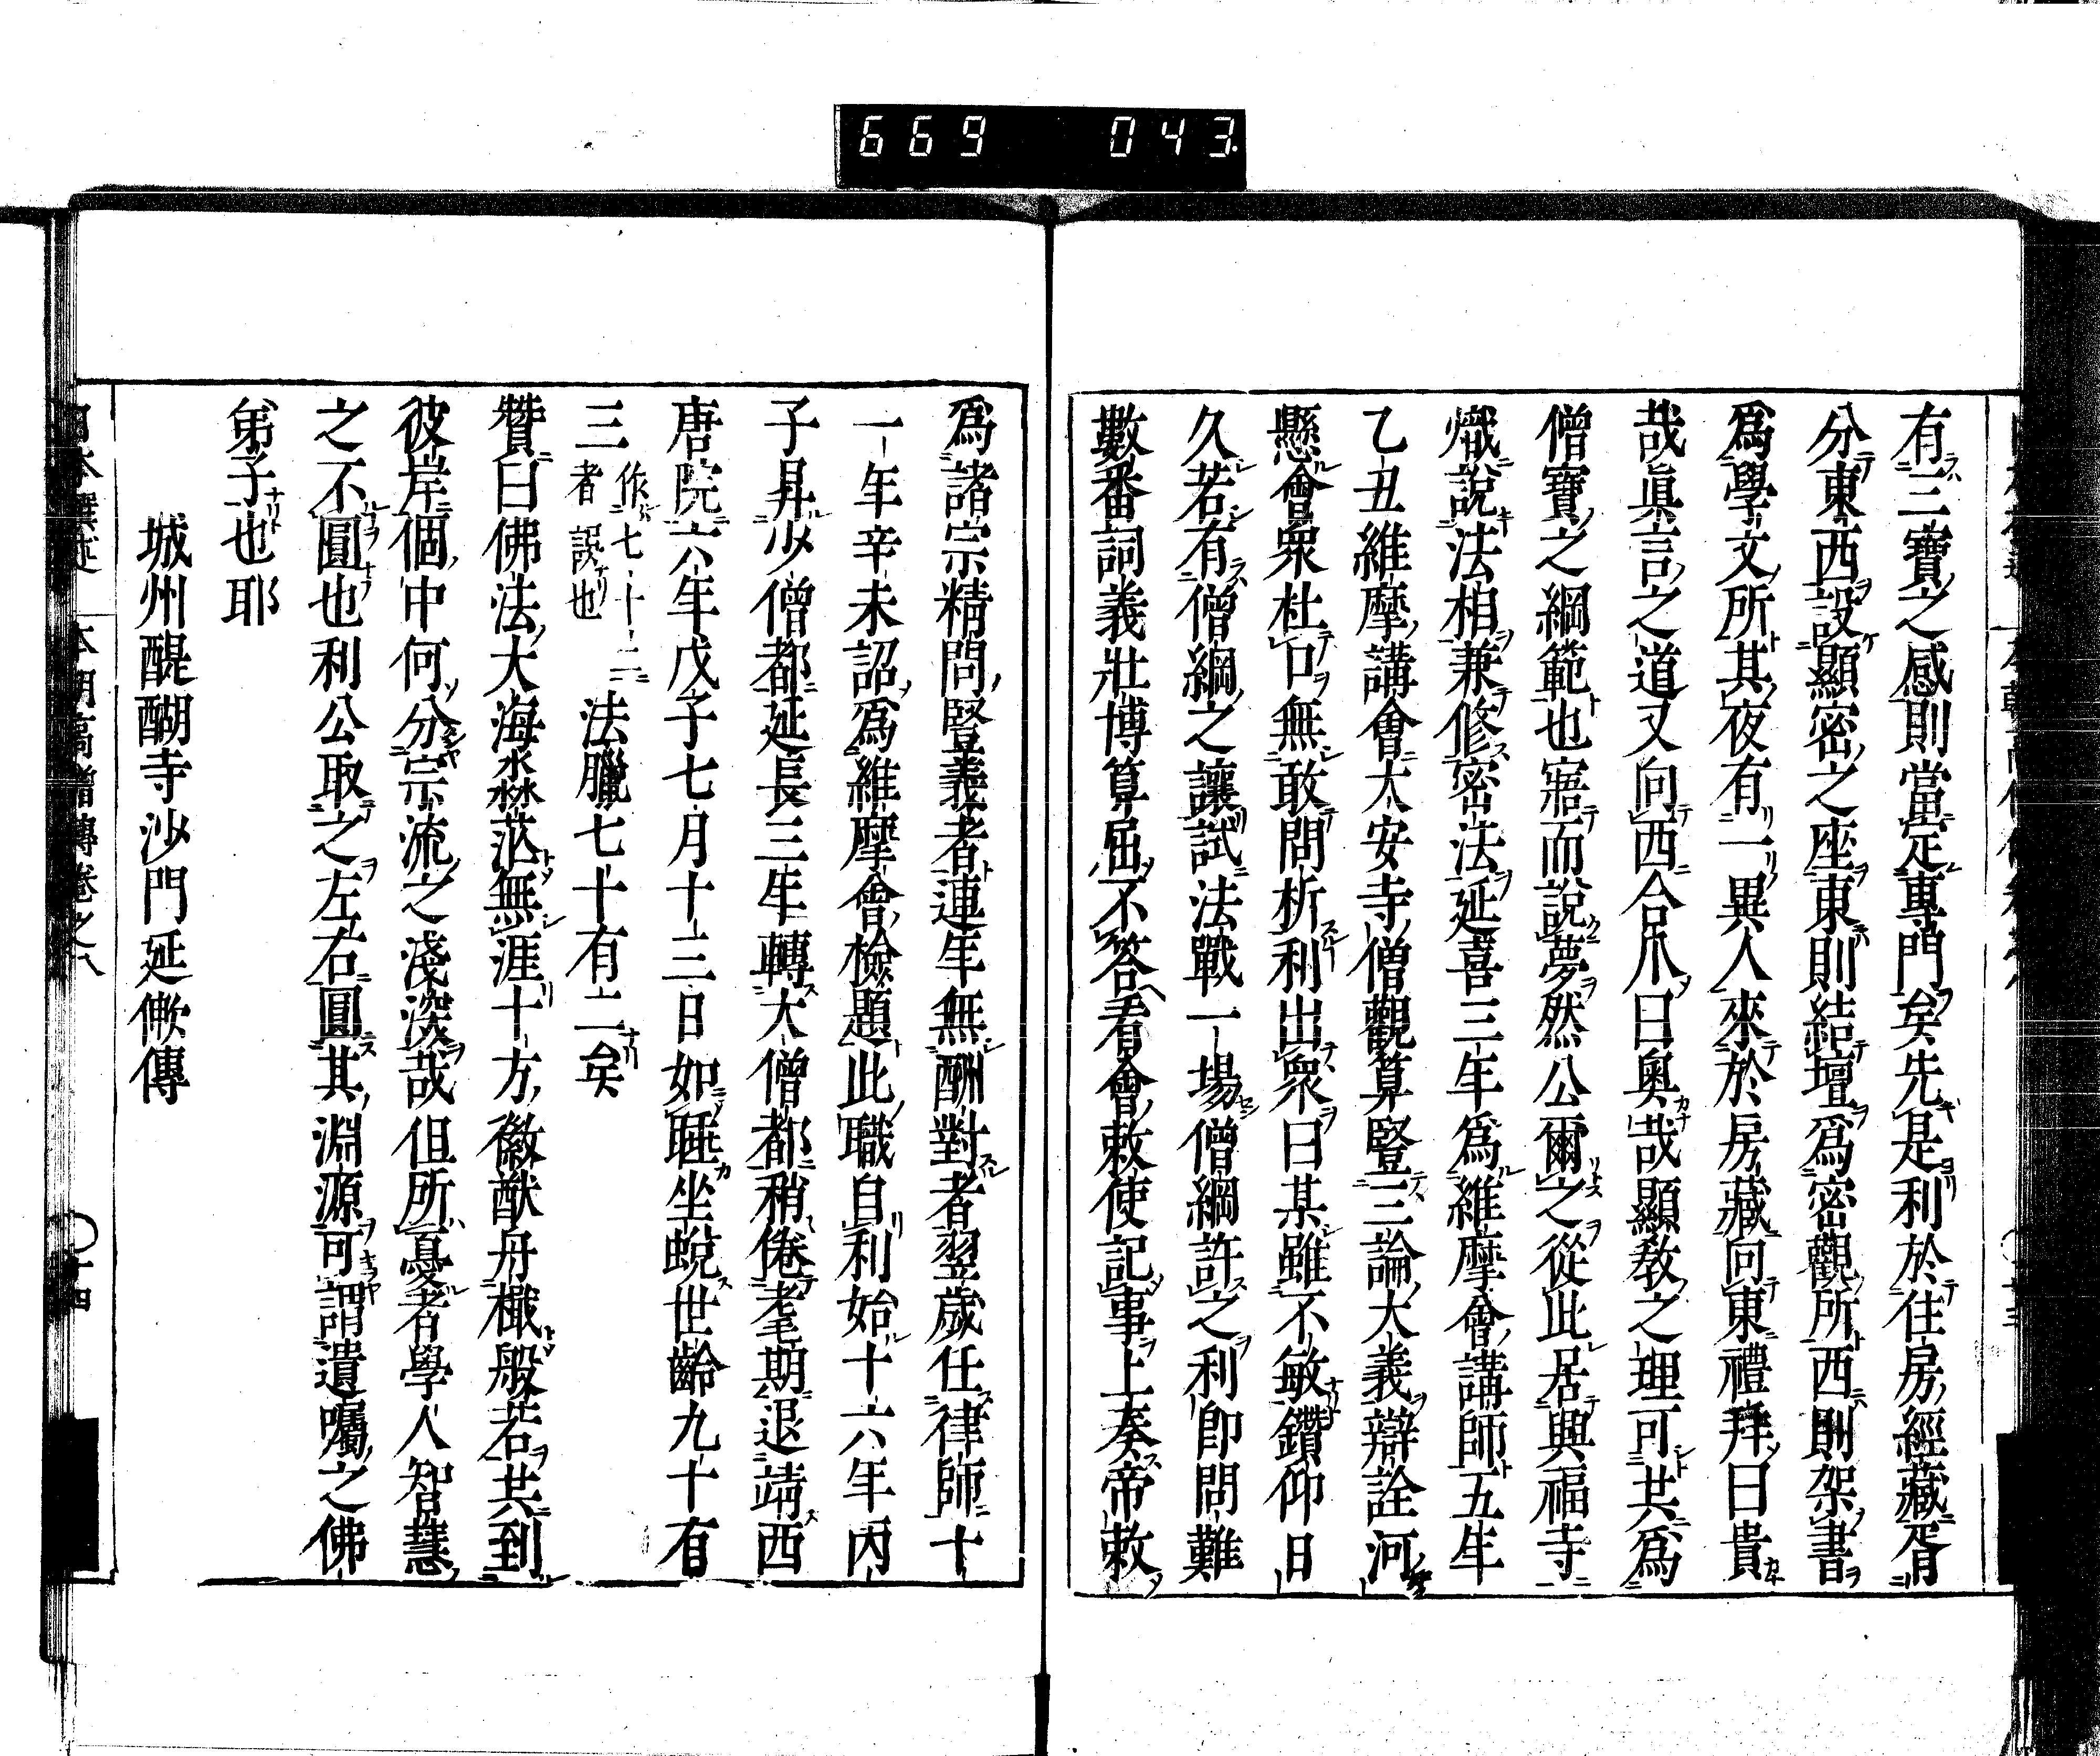 669 043
有三寶之感則當定專門矣先是利於住房經藏胥
分東西設顯密之座東則結壇爲密觀所西則架書
爲學文所其夜有一異人來於房藏向東禮拜曰貴
哉眞言之道又向西合爪曰奧哉顯教之理可共爲
僧寶之綱範也寤而說夢然公爾之從此居興福寺
熾說法相兼修密法延喜三年爲維摩會講師五年
乙丑維摩講會大安寺僧觀算豎三論大義辯詮河
懸會衆杜口無敢問析利出衆曰某雖不敏鑽仰日
久若有僧綱之讓試法戰一場僧綱許之利即問難
數番詞義壯博算屈不答看會敕使記事上奏帝敕
爲諸宗精問豎義者連年無酬對者翌歲任律師十
一年辛未詔爲維摩會檢題此職自利始十六年丙
子昇少僧都延長三年轉大僧都稍倦耄期退靖西
唐院六年戊子七月十三日如睡坐蛻世齡九十有
三作七十二者誤也法臘七十有二矣
贊曰佛法大海淼茫無涯十方徽猷舟檝般若共到
彼岸個中何分宗流之淺深哉但所憂者學人智慧
之不圓也利公取之左右圓其淵源可謂遺囑之佛
弟子也耶
城州醍醐寺沙門延傳
本朝高僧傳卷之八